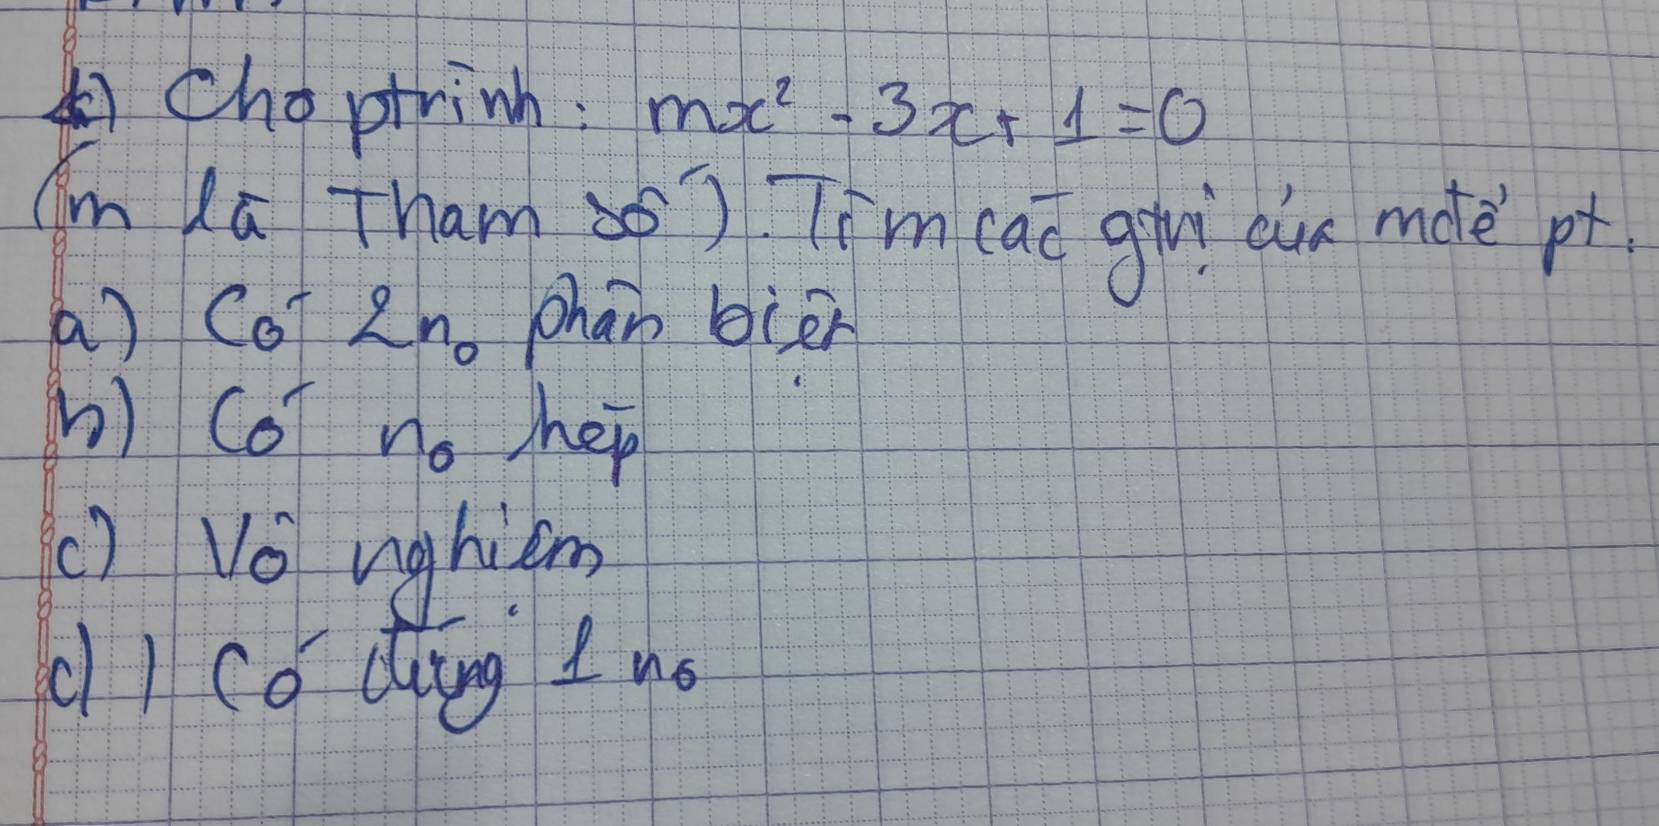 b) Cho ptrình: mx² - 3x + 1 = 0
(m là Tham số). Tìm các gtrị của m để pt.
a) Có 2 n₀ phân biệt
b) Có n₀ kép
c) Vô nghiệm
d) Có đúng 1 n₀